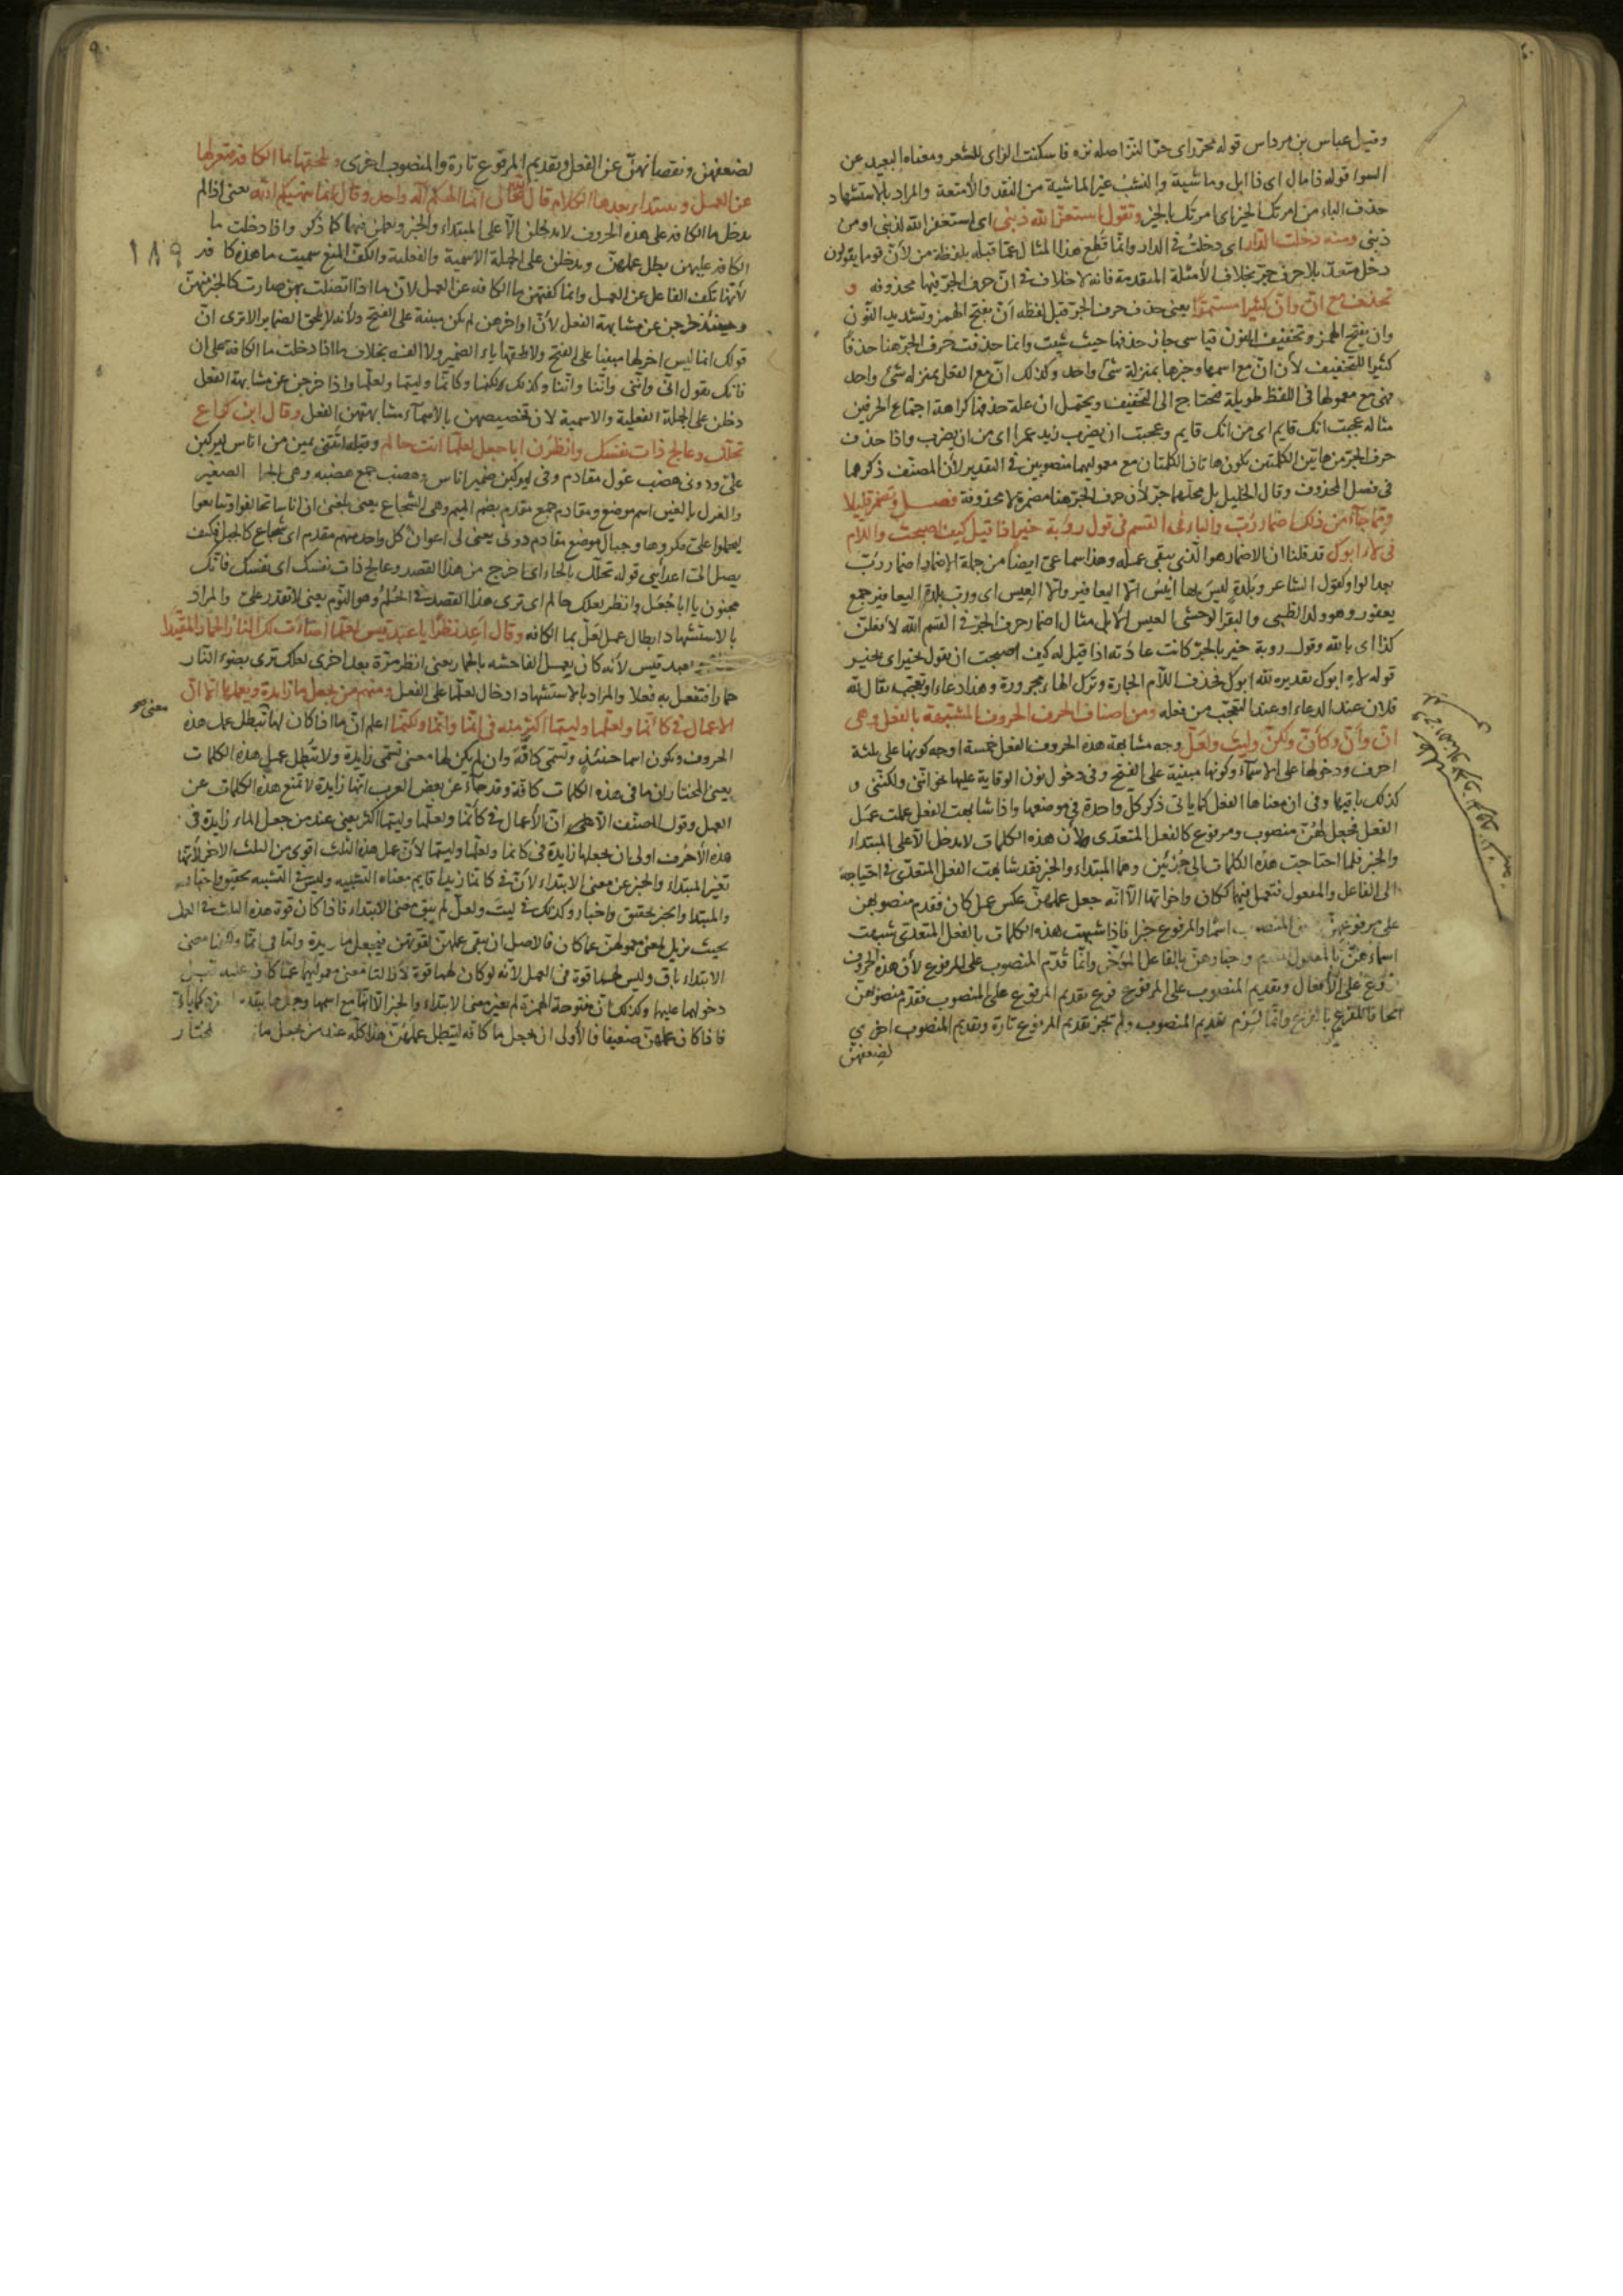 وقيل عباس بن مرداس قوله محترزاى حرّا لنزا اصله نزه فاسكنت الزاى للشعر ومعناه البعيد عن
السوا قوله ذا مال اى ذا ابل وماشية والنشب غير الماشية من النقد والأمتعة والمراد بالاستشهاد
حذف الباء من امرتك الخير اى امرتك بالخير وتقول استغفر الله ذنبى اى استغفر الله لذنبى او من
ذنبى ومنه دخلت الدار اى دخلت فى الدار وانما قطع هذا المثال عما قبله بلفظة من لأن قوما يقولون
دخل متعد بلا حرف جر بخلاف الأمثلة المتقدمة فانه لا خلاف فى ان حرف الجر فيها محذوفه و
تحذف مع انّ وأن كثيرا مستمرا يعنى حذف حرف الجر قبل لفظه أن بفتح الهمز وتشديد النون
وان بفتح الهمز وتخفيف النون قياسى جاز حذفها حيث شيت وانما حذفت حرف الجر هنا حذفا
كثيرا للتخفيف لأن انّ مع اسمها وخبرها بمنزلة شئ واحد وكذلك ان مع الفعل بمنزله شئ واحد
فهى مع معمولها فى اللفظ طويلة فتحتاج الى التخفيف ويحتمل ان علة حذفها كراهة اجتماع الحرفين
مثاله عجبت انك قايم اى من انك قايم وعجبت ان يضرب زيد عمرا اى من ان يضرب واذا حذف
حرف الجر من هاتين الكلمتين يكون هاتان الكلمتان مع معموليهما منصوبين فى التقدير لأن المصنف ذكرهما
فى فصل المحذوف وقال الخليل بل محلهما جر لأن حرف الجر هنا مضمرة لا محذوفة فصل وتضمر قليلا
ومما جاء من ذلك اضمار رُبّ والباء فى القسم فى قول رؤبة خير اذا قيل كيف اصبحت واللام
فى لاه ابوك قد قلنا ان الاضمار هو الذى يبقى عمله وهذا سماعى ايضا من جملة الاضمار اضمار ربّ
بعد الواو كقول الشاعر وبلدة ليس بها انيس الا اليعافير والا العيس اى ورب بلدة اليعافير جمع
يعفور وهو ولد الظبى والبقر الوحشى العيس الابل مثال اضمار حرف الجر فى القسم الله لأفعلن
كذا اى بالله وقول روبة خير بالجر كانت عادته اذا قيل له كيف اصبحت ان يقول خير اى بخير
قوله لاه ابوك تقديره لله ابوك فحذف اللام الجارة وترك الهاء مجرورة وهذا دعاء او تعجب يقال لله
فلان عند الدعاء او عند التعجب من فعله ومن اصناف الحرف الحروف المشبهة بالفعل وهى
انّ وأنّ وكأنّ ولكنّ وليت ولعلّ وجه مشابهة هذه الحروف الفعل خمسة اوجه كونها على ثلثة
احرف ودخولها على الاسماء وكونها مبنية على الفتح وفى دخول نون الوقاية عليها نحو اننى ولكننى و
كذلك باقيها وفى ان معناها الفعل كما ياتى ذكر كل واحدة فى موضعها واذا شابهت الفعل عملت عمل
الفعل فجعل لهن منصوب ومرفوع كالفعل المتعدى ولأن هذه الكلمات لا يدخل الا على المبتداء
والخبر فلما احتاجت هذه الكلمات الى جزئين وهما المبتداء والخبر فقد شابهت الفعل المتعدى فى احتياجه
الى الفاعل والمفعول فتعمل فيهما ككان واخواتها الا انه جعل عملهن عكس عمل كان فقدم منصوبهن
على مرفوعهن المنصوب اسما والمرفوع خبرا فاذا شبهت هذه الكلمات بالفعل المتعدى شبهت
اسماؤهن بالمفعول المقدم واخبارهن بالفاعل المؤخر وانما قدم المنصوب على المرفوع لأن هذه الحروف
فرع على الأفعال وتقديم المنصوب على المرفوع فرع تقديم المرفوع على المنصوب فقدم منصوبهن
الحاقا للفرع بالفرع وانما لزم تقديم المنصوب ولم تجز تقديم المرفوع تارة وتقديم المنصوب اخرى
لضعفهن
لضعفهن ونقصانهن عن الفعل وتقديم المرفوع تارة والمنصوب اخرى وتلحقها ما الكافه فتعزلها
عن العمل ويبتداء بعدها الكلام قال الله تعالى انما الهكم اله واحد وقال انما ينهيكم الله يعنى اذا لم
يدخل ما الكافه على هذه الحروف لا يدخلن الا على المبتداء والخبر ويعملن فيهما كما ذكر واذا دخلت ما
الكافه عليهن بطل عملهن ويدخلن على الجملة الاسمية والفعلية والكف المنع سميت ما هذه كافه
١٨٩
لأنها تكف الفاعل عن العمل وانما كفتهن ما الكافه عن العمل لان ما اذا اتصلت بهن صارت كالجزء منهن
وحينئذ خرجن عن مشابهة الفعل لأن اواخرهن لم يكن مبنية على الفتح ولأنه لا يلحق الضماير الا ترى ان
قولك انما ليس اخرها مبنيا على الفتح ولا تلحقها ياء الضمير ولا الفه بخلاف ما اذا دخلت ما الكافة على ان
فانك تقول انى واننى واننا وانّنا وكذلك لكنما وكانما وليتما ولعلما واذا خرجن عن مشابهة الفعل
دخلن على الجملة الفعلية والاسمية لان تخصيصهن بالاسماء لمشابهتهن الفعل وقال ابن كراع
تحلل وعالج ذات نفسك وانظرن ابا جعل لعلما انت حالم وقبله اتتنى يمين من اناس ليركبن
على ودونى هضب غول مقادم وفى ليركبن ضمير اناس وهضب جمع هضبه وهى الصغير
والغول بالغين اسم موضع ومقادم جمع مقدم بضم الميم وهى الشجاع يعنى بلغنى ان اناسا تحالفوا وتبايعوا
ليحملوا على مكروها وجبال موضع مقادم دونى يعنى لى اعوان كل واحد منهم مقدم اى شجاع كالجبل فكيف
يصل الى اعدائى قوله تحلل بالحاء اى اخرج من هذا القصد وعالج ذات نفسك اى نفسك فانك
مجنون يا ابا جعل وانظر لعلك حالم اى ترى هذا القصد فى الحلم وهو النوم يعنى لا تقدر على والمراد
بالاستشهاد ابطال عمل لعل بما الكافه وقال اعد نظرا يا عبد قيس لعلما اضاءت لك النار الحمار المقيدا
بعبد قيس لأنه كان يعمل الفاحشه بالحمار يعنى انظر مرة بعد اخرى لعلك ترى بضوء النار
حمارا فتفعل به فعلا والمراد بالاستشهاد ادخال لعلما على الفعل ومنهم من يجعل ما زايدة ويعملها الا ان
معنى هو
الاعمال فى كأنما ولعلما وليتما اكثر منه فى انما وانما ولكنما اعلم ان ما اذا كان لها تبطل عمل هذه
الحروف وتكون اسما حينئذ وتسمى كافة وان لم يكن لها معنى تسمى زايدة ولا تبطل عمل هذه الكلمات
يعنى المختار ان ما فى هذه الكلمات كافة وقد جاء عن بعض العرب انها زايدة لا تمنع هذه الكلمات عن
العمل وقول المصنف الا ان الأعمال فى كأنما ولعلما وليتما اكثر يعنى عند من جعل الماء زايدة فى
هذه الأحرف اولى ان يجعلها زايدة فى كانما ولعلما وليتما لأن عمل هذه الثلث اقوى من الثلث الاخر لأنها
تغير المبتداء والخبر عن معنى الابتداء لأن فى كانما زيدا قايم معناه التشبيه وليس فى التشبيه تحقيق واخبار
والمبتدا والخبر تحقيق واخبار وكذلك فى ليت ولعل لم يبق معنى الابتداء فاذا كان قوة هذه الثلث فى العمل
بحيث يزيل معنى معمولهن عما كان فالأصل ان يبقى عملهن لقوتهن فيجعل ما زيدة واما فى انما معنى
الابتداء باق وليس لهما قوة فى العمل لأنه لو كان لهما قوة لأزالتا معنى معموليهما عما كان عليه قبل
دخولهما عليها وكذلك ان مفتوحة الهمزة لم يغير معنى الابتداء والخبر الا انها مع اسمها وخبرها
فاذا كان عملهن ضعيفا فالأولى ان يجعل ما كافه ليبطل عملهن هذا كله عند من يجعل ما المختار